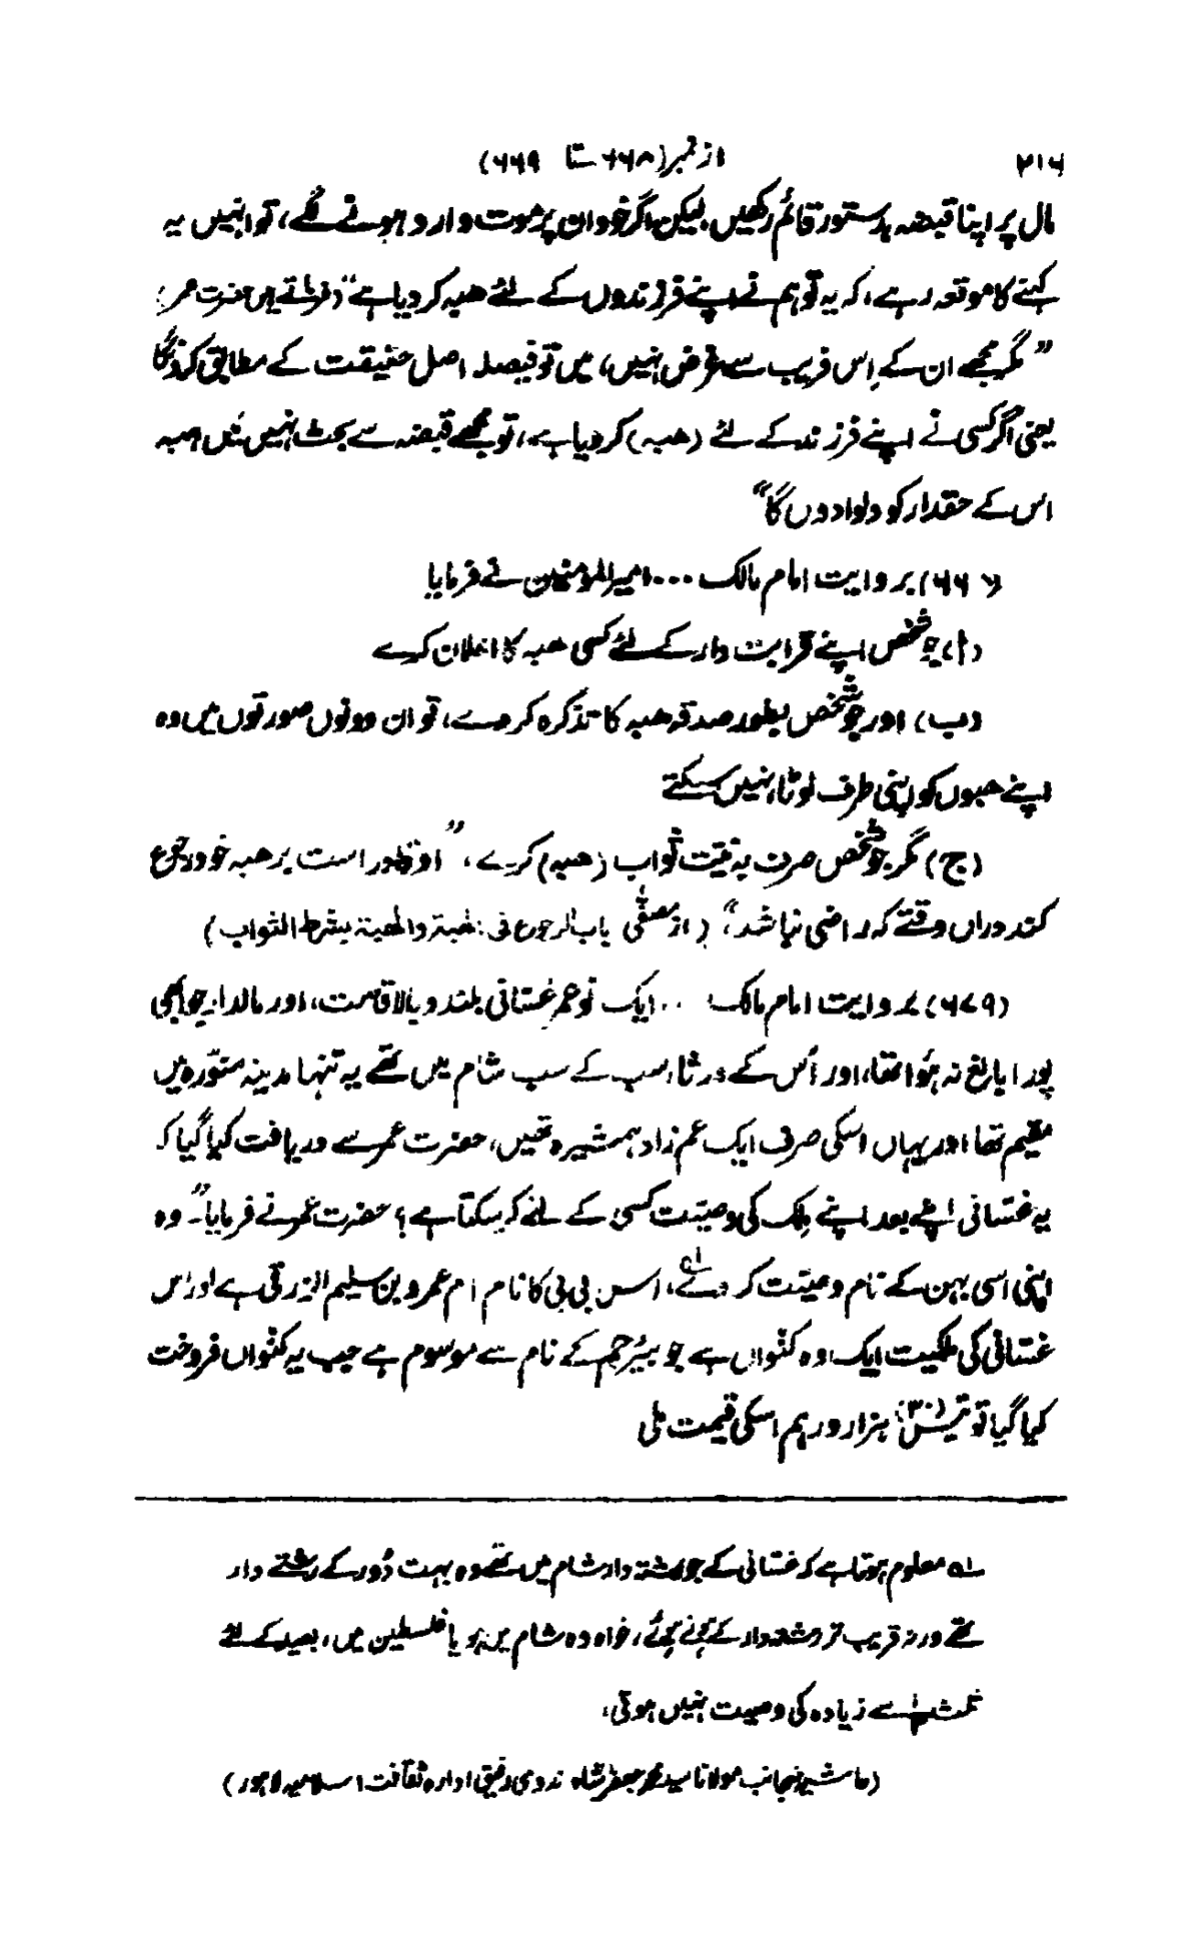 ۲۱۶ از نمبر (۶۶۸ تا ۶۶۹)
مال پر اپنا قبضہ بدستور قائم رکھیں، لیکن اگر خود ان پر موت وارد ہونے لگے، تو انہیں یہ
کہنے کا موقعہ رہے، کہ یہ تو ہم نے اپنے فرزندوں کے لئے ھبہ کر دیا ہے“ (فرماتے ہیں حضرت عمر:
”مگر مجھے ان کے اِس فریب سے غرض نہیں، میں تو فیصلہ اصل حقیقت کے مطابق کرونگا
یعنی اگر کسی نے اپنے فرزند کے لئے (ھبہ) کر دیا ہے، تو مجھے قبضہ سے بحث نہیں مَیں ھبہ
اس کے حقدار کو دلوادوں گا“
بروایت امام مالک ۰۰۰ امیر المؤمنین نے فرمایا
(أ) جو شخص اپنے قرابت دار کے لئے کسی ھبہ کا اعلان کرے
(ب) اور جو شخص بطور صدقہ ھبہ کا تذکرہ کر دے، تو ان دونوں صورتوں میں وہ
اپنے ھبوں کو اپنی طرف لوٹا نہیں سکتے
(ج) مگر جو شخص صرف بہ نیّت ثواب (ھبہ) کرے، ”او نظور است بر ھبہ خود رجوع
کند دراں وقتے کہ راضی نباشد“، (از مصفّٰی باب الرجوع فی الھبة والھبة بشرط الثواب)
(۶۷۹) بروایت امام مالک ۰۰۰ ایک نوعمر غسّانی بلند و بالا قامت، اور مالدار جو ابھی
پورا بالغ نہ ہُوا تھا، اور اُس کے ورثاء سب کے سب شام میں تھے یہ تنہا مدینہ منوّرہ میں
مقیم تھا اور یہاں اسکی صرف ایک عم زاد ہمشیرہ تھیں، حضرت عمر سے دریافت کیا گیا کہ
یہ غسّانی اپنے بعد اپنے مِلک کی وصیّت کسی کے لئے کر سکتا ہے؟ حضرت عمر نے فرمایا ”۔ وہ
اپنی اسی بہن کے نام وصیّت کر دے“، اس بی بی کا نام ام عمرو بن سلیم الزرقی ہے اور اس
غسّانی کی ملکیت ایک وہ کنّواں ہے جو بئر جم کے نام سے موسوم ہے جب یہ کنّواں فروخت
کیا گیا تو تیس (۳۰) ہزار درہم اسکی قیمت ملی
لہ معلوم ہوتا ہے کہ غسّانی کے جو رشتہ دار شام میں تھے وہ بہت دُور کے رشتے دار
تھے ورنہ قریب تر رشتہ دار کے ہوتے ہوئے، خواہ وہ شام میں ہو یا فلسطین میں، بعید کے لئے
ثلث ⅓ سے زیادہ کی وصیت نہیں ہوتی،
(حاشیہ منجانب مولانا سید محمد جعفر شاہ ندوی رفیق ادارہ ثقافت اسلامیہ لاہور)